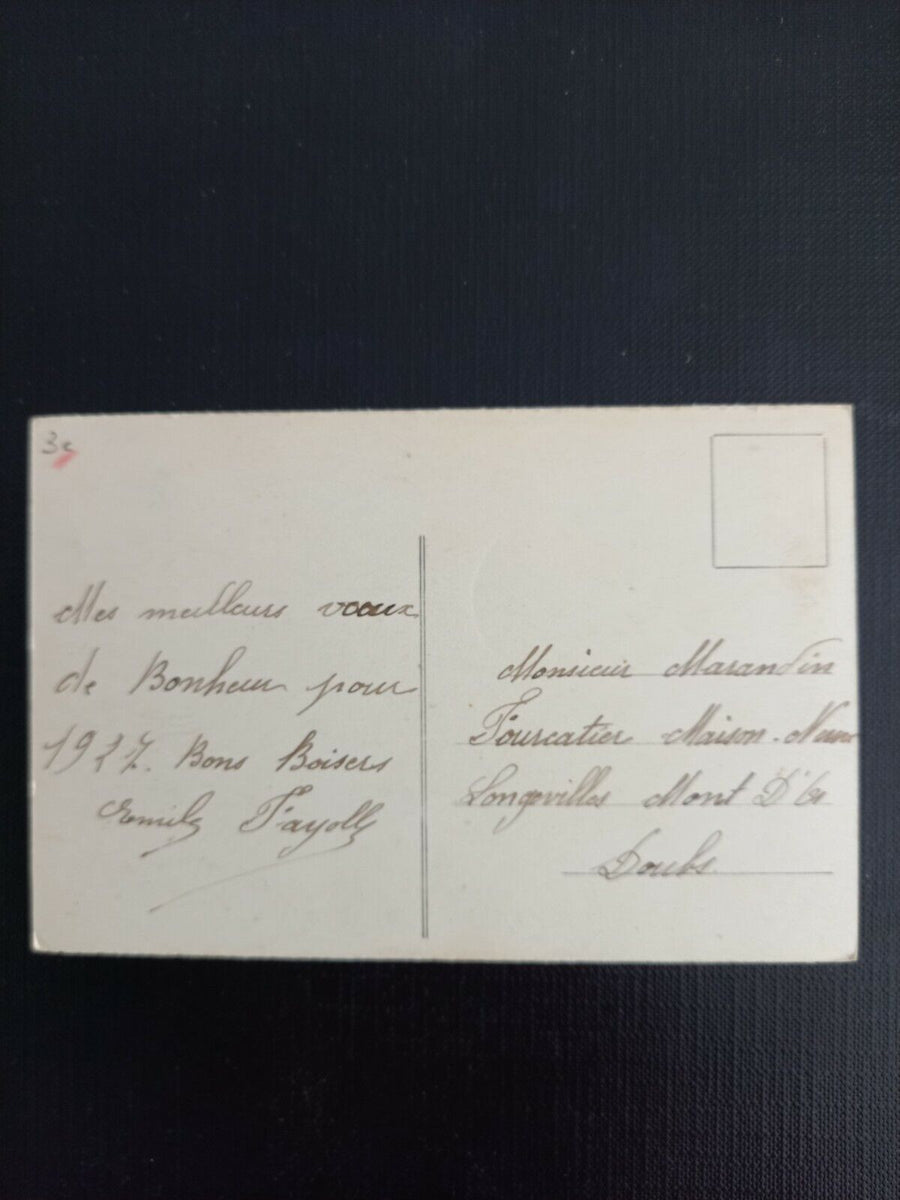 3€
Mes meilleurs voeux
de Bonheur pour
1927. Bons Baisers
Emile Fayolle
Monsieur Marandin
Fourcatier Maison-Neuve
Longevilles Mont D'Or
Doubs